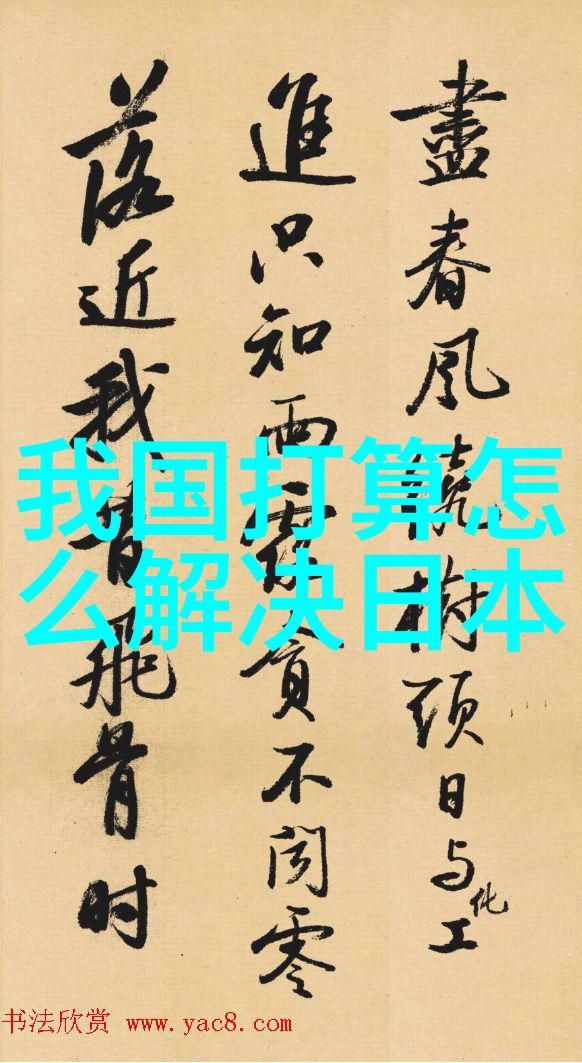 盡春風繞樹頭日与化工
進只知雨露貪不聞零
落近我昔飛骨时
我国打算怎
么解决日本
书法欣赏 www.yac8.com